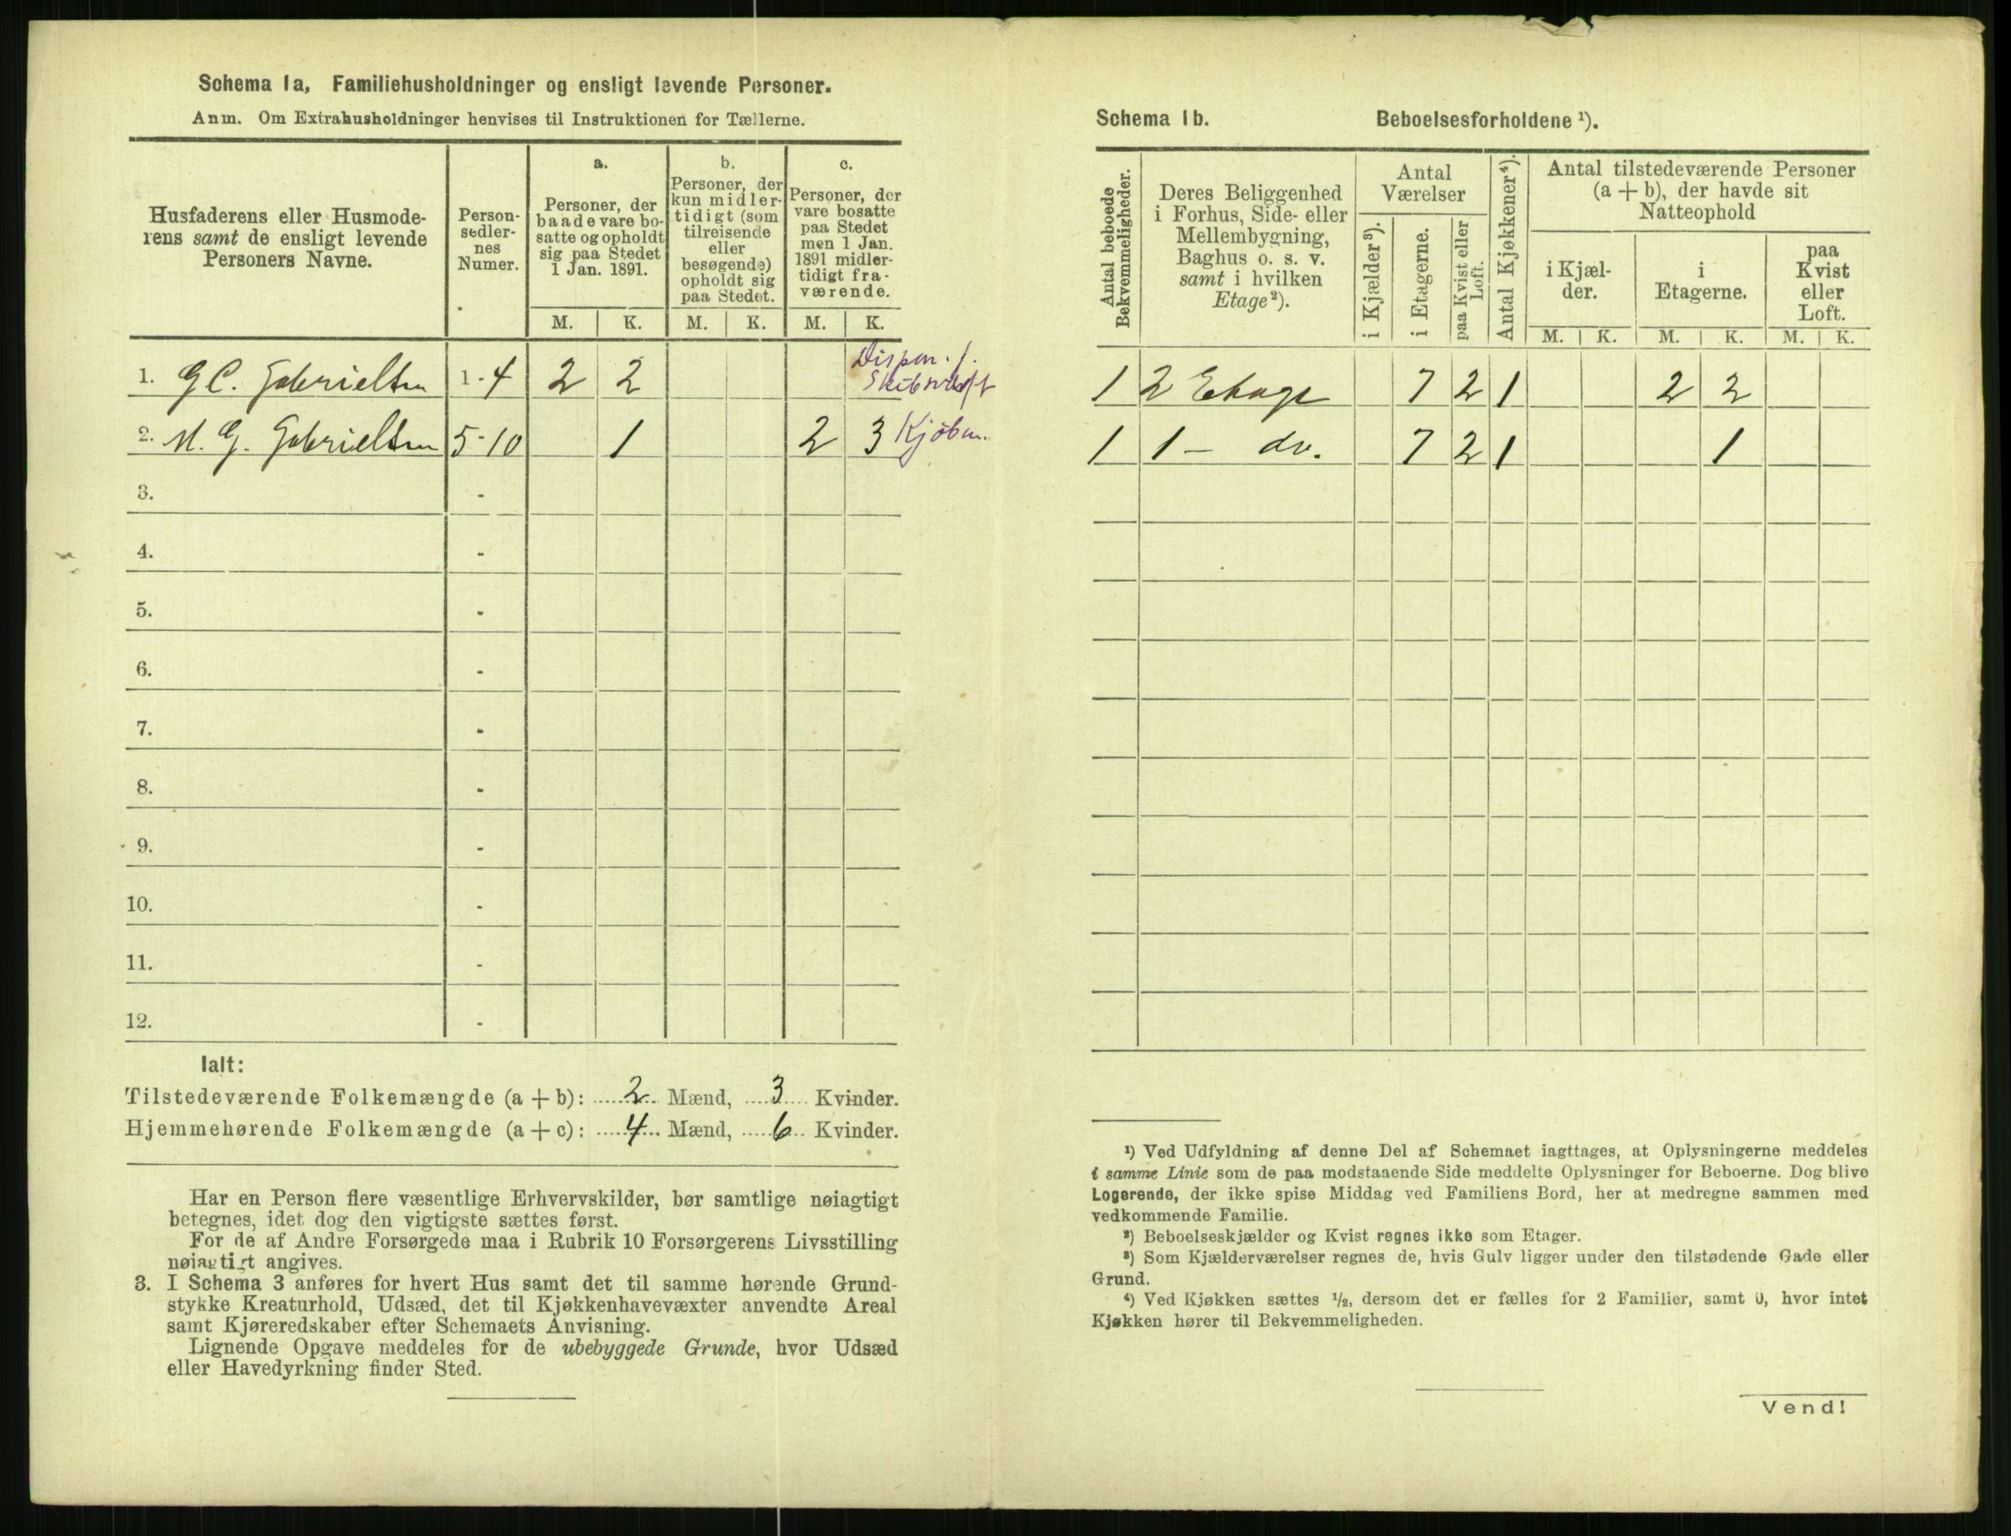 Schema 1a, Familiehusholdninger og ensligt levende Personer.
Anm. Om Extrahusholdninger henvises til Instruktionen for Tællerne.
Husfaderens eller Husmode-
rens samt de ensligt levende
Personers Navne.
Person-
sedler-
nes
Numer.
a.
Personer, der
baade vare bo-
satte og opholdt
sig paa Stedet
1 Jan. 1891.
b.
Personer, der
kun midler-
tidigt (som
tilreisende
eller
besøgende)
opholdt sig
paa Stedet.
c.
Personer, der
vare bosatte
paa Stedet
men 1 Jan.
1891 midler-
tidigt fra-
værende.
M. K. M. K. M. K.
1. G C. Gabrielsen 1-4 2 2 Dispon. f.
Skibsværft
2. M. G. Gabrielsen 5-10 1 2 3 Kjøbm.
3. -
4. -
5. -
6. -
7. -
8. -
9. -
10. -
11. -
12. -
Ialt:
Tilstedeværende Folkemængde (a + b): 2 Mænd, 3 Kvinder.
Hjemmehørende Folkemængde (a + c): 4 Mænd, 6 Kvinder.
Har en Person flere væsentlige Erhvervskilder, bør samtlige nøiagtigt
betegnes, idet dog den vigtigste sættes først.
For de af Andre Forsørgede maa i Rubrik 10 Forsørgerens Livsstilling
nøiagtigt angives.
3. I Schema 3 anføres for hvert Hus samt det til samme hørende Grund-
stykke Kreaturhold, Udsæd, det til Kjøkkenhavevæxter anvendte Areal
samt Kjøreredskaber efter Schemaets Anvisning.
Lignende Opgave meddeles for de ubebyggede Grunde, hvor Udsæd
eller Havedyrkning finder Sted.
Schema 1b. Beboelsesforholdene ¹).
Antal beboede
Bekvemmeligheder.
Deres Beliggenhed
i Forhus, Side- eller
Mellembygning,
Baghus o. s. v.
samt i hvilken
Etage ²).
Antal
Værelser
i Kjælder ³).
i Etagerne.
paa Kvist eller
Loft.
Antal Kjøkkener ⁴).
Antal tilstedeværende Personer
(a + b), der havde sit
Natteophold
i Kjæl-
der.
i
Etagerne.
paa
Kvist
eller
Loft.
M. K. M. K. M. K.
1 2 Etage 7 2 1 2 2
1 1 - do. 7 2 1 1
¹) Ved Udfyldning af denne Del af Schemaet iagttages, at Oplysningerne meddeles
i samme Linie som de paa modstaaende Side meddelte Oplysninger for Beboerne. Dog blive
Logerende, der ikke spise Middag ved Familiens Bord, her at medregne sammen med
vedkommende Familie.
²) Beboelseskjælder og Kvist regnes ikke som Etager.
³) Som Kjælderværelser regnes de, hvis Gulv ligger under den tilstødende Gade eller
Grund.
⁴) Ved Kjøkken sættes ½, dersom det er fælles for 2 Familier, samt 0, hvor intet
Kjøkken hører til Bekvemmeligheden.
Vend!